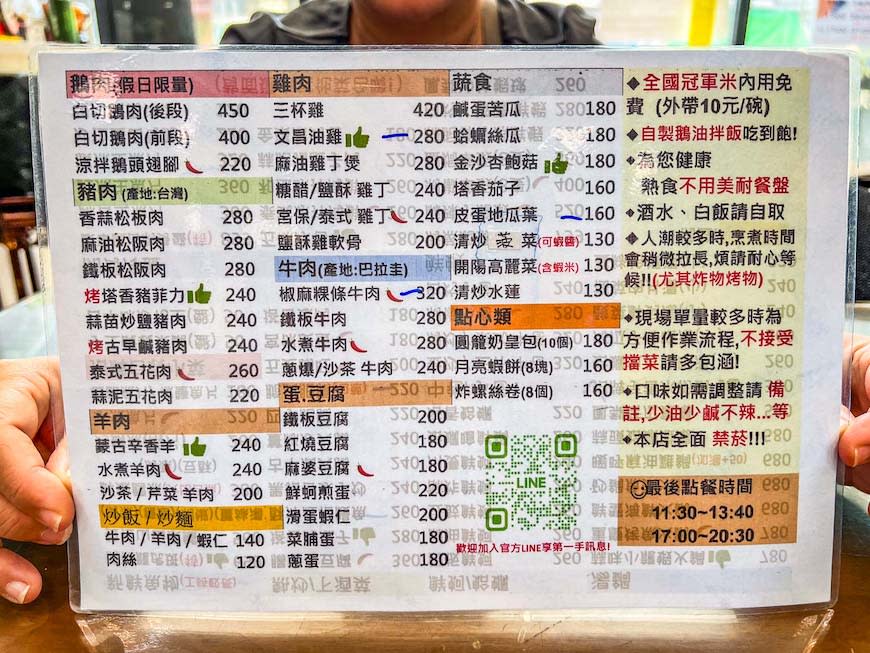 鵝肉(假日限量)
白切鵝肉(後段) 450
白切鵝肉(前段) 400
涼拌鵝頭翅腳 220
豬肉(產地:台灣)
香蒜松板肉 280
麻油松阪肉 280
鐵板松阪肉 280
烤塔香豬菲力 240
蒜苗炒鹽豬肉 240
烤古早鹹豬肉 240
泰式五花肉 260
蒜泥五花肉 220
羊肉
蒙古辛香羊 240
水煮羊肉 240
沙茶/芹菜 羊肉 200
炒飯/炒麵
牛肉/羊肉/蝦仁 140
肉絲 120
雞肉
三杯雞 420
文昌油雞 280
麻油雞丁煲 280
糖醋/鹽酥 雞丁 240
宮保/泰式 雞丁 240
鹽酥雞軟骨 200
牛肉(產地:巴拉圭)
椒麻粿條牛肉 320
鐵板牛肉 280
水煮牛肉 280
蔥爆/沙茶 牛肉 240
蛋.豆腐
鐵板豆腐 200
紅燒豆腐 180
麻婆豆腐 180
鮮蚵煎蛋 220
滑蛋蝦仁 200
菜脯蛋 180
蔥蛋 180
蔬食
鹹蛋苦瓜 180
蛤蜊絲瓜 180
金沙杏鮑菇 180
塔香茄子 160
皮蛋地瓜葉 160
清炒 菜(可蝦醬) 130
開陽高麗菜(含蝦米) 130
清炒水蓮 130
點心類
圓籠奶皇包(10個) 180
月亮蝦餅(8塊) 160
炸螺絲卷(8個) 160
LINE
歡迎加入官方LINE享第一手訊息!
◆全國冠軍米內用免
費 (外帶10元/碗)
◆自製鵝油拌飯吃到飽!
◆為您健康
熱食不用美耐餐盤
◆酒水、白飯請自取
◆人潮較多時,烹煮時間
會稍微拉長,煩請耐心等
候!!(尤其炸物烤物)
◆現場單量較多時為
方便作業流程,不接受
擋菜請多包涵!
◆口味如需調整請 備
註,少油少鹹不辣...等
◆本店全面 禁菸!!!
最後點餐時間
11:30~13:40
17:00~20:30